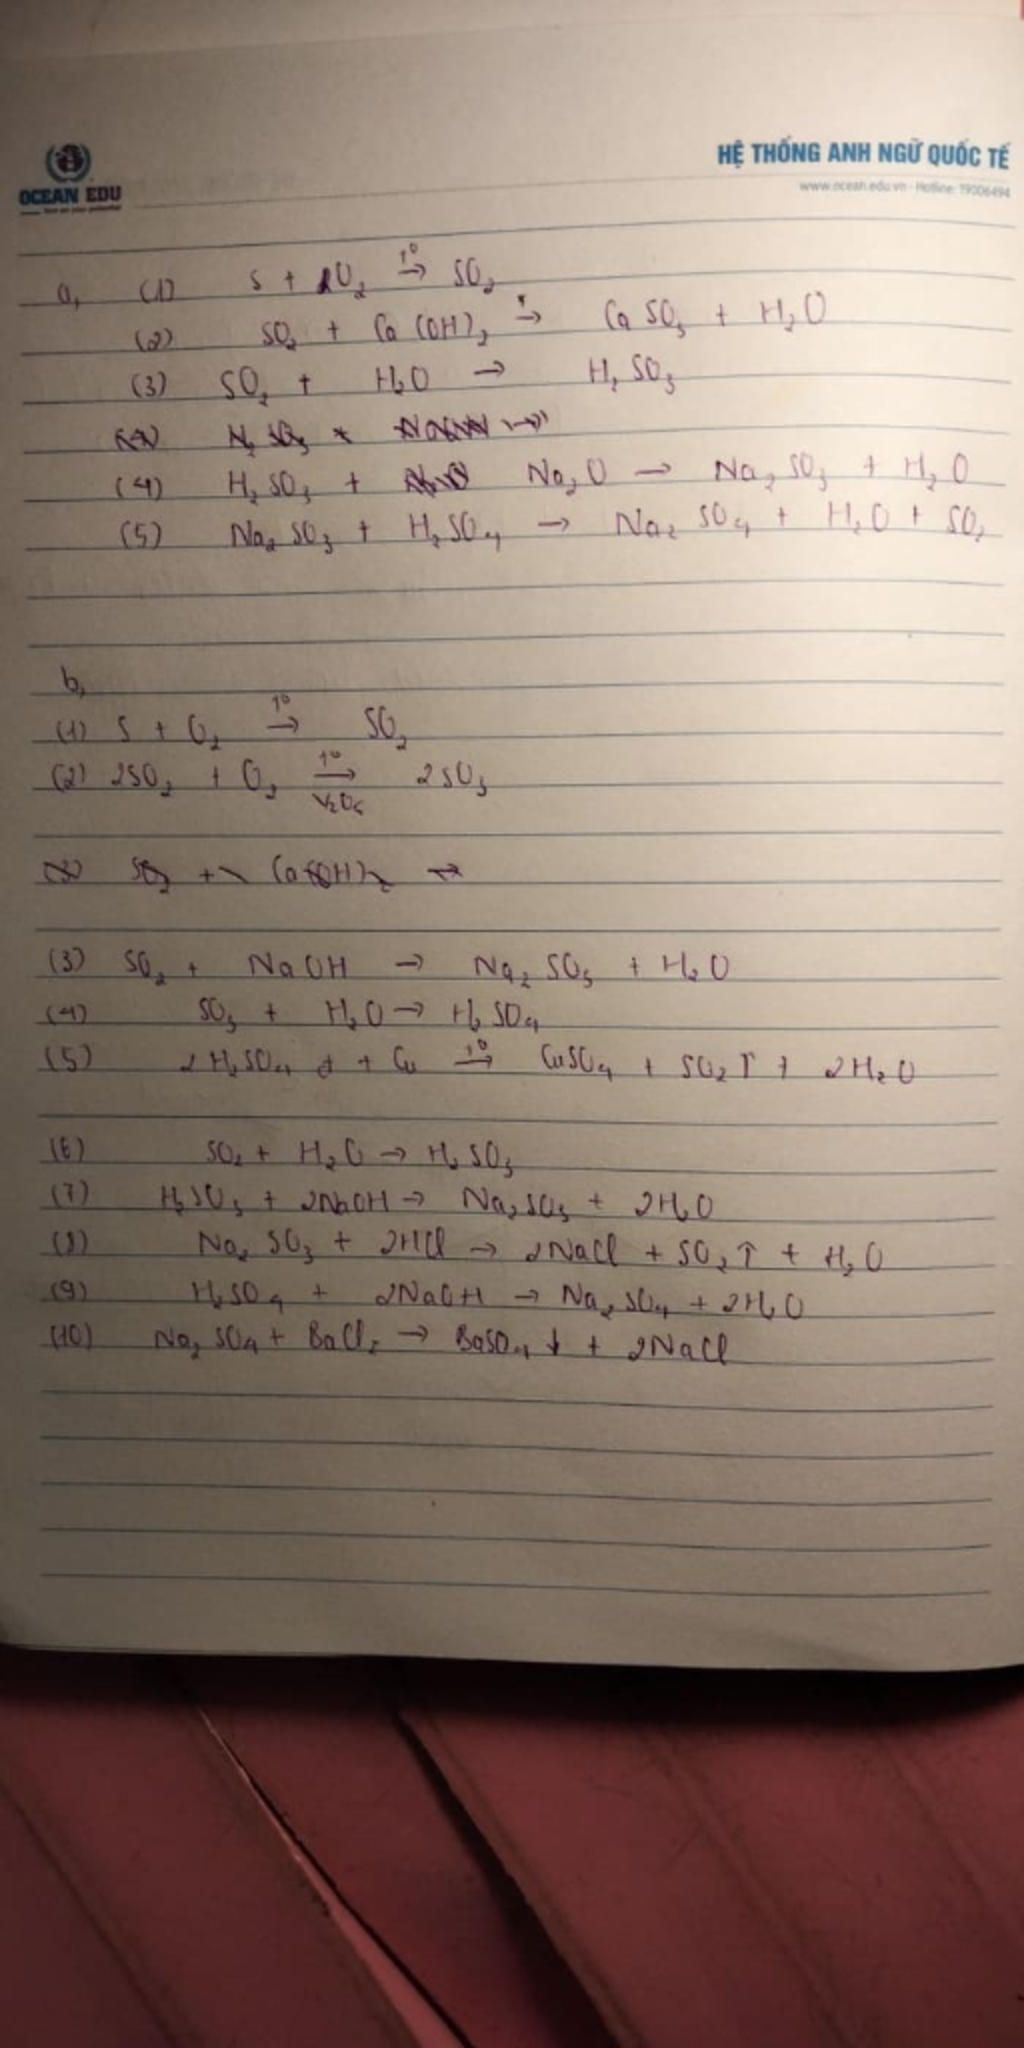 OCEAN EDU
HỆ THỐNG ANH NGỮ QUỐC TẾ
www.ocean.edu.vn - Hotline: 19006494
a, (1) S + O₂ t° → SO₂
(2) SO₂ + Ca(OH)₂ → CaSO₃ + H₂O
(3) SO₂ + H₂O → H₂SO₃
(4) H₂SO₃ + Na₂O → Na₂SO₃ + H₂O
(5) Na₂SO₃ + H₂SO₄ → Na₂SO₄ + H₂O + SO₂
b,
(1) S + O₂ t° → SO₂
(2) 2SO₂ + O₂ t° → V₂O₅ 2SO₃
SO₂ + Ca(OH)₂ →
(3) SO₂ + NaOH → Na₂SO₃ + H₂O
(4) SO₃ + H₂O → H₂SO₄
(5) 2H₂SO₄ + Cu t° → CuSO₄ + SO₂↑ + 2H₂O
(6) SO₂ + H₂O → H₂SO₃
(7) H₂SO₃ + 2NaOH → Na₂SO₃ + 2H₂O
(8) Na₂SO₃ + 2HCl → 2NaCl + SO₂↑ + H₂O
(9) H₂SO₄ + 2NaOH → Na₂SO₄ + 2H₂O
(10) Na₂SO₄ + BaCl₂ → BaSO₄↓ + 2NaCl